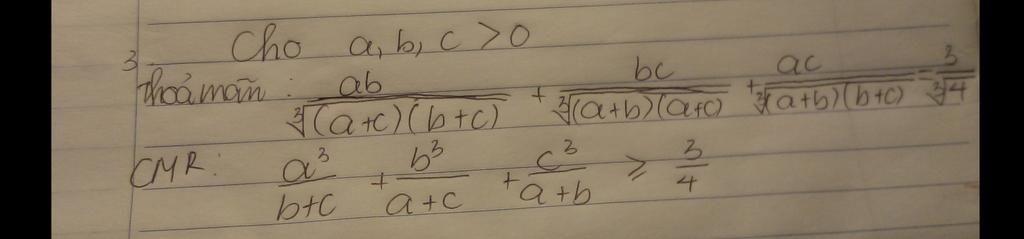 3. Cho a, b, c > 0
thoả mãn: \frac{ab}{\sqrt[3]{(a+c)(b+c)}} + \frac{bc}{\sqrt[3]{(a+b)(a+c)}} + \frac{ac}{\sqrt[3]{(a+b)(b+c)}} = \frac{3}{\sqrt[3]{4}}
CMR: \frac{a^3}{b+c} + \frac{b^3}{a+c} + \frac{c^3}{a+b} ≥ \frac{3}{4}